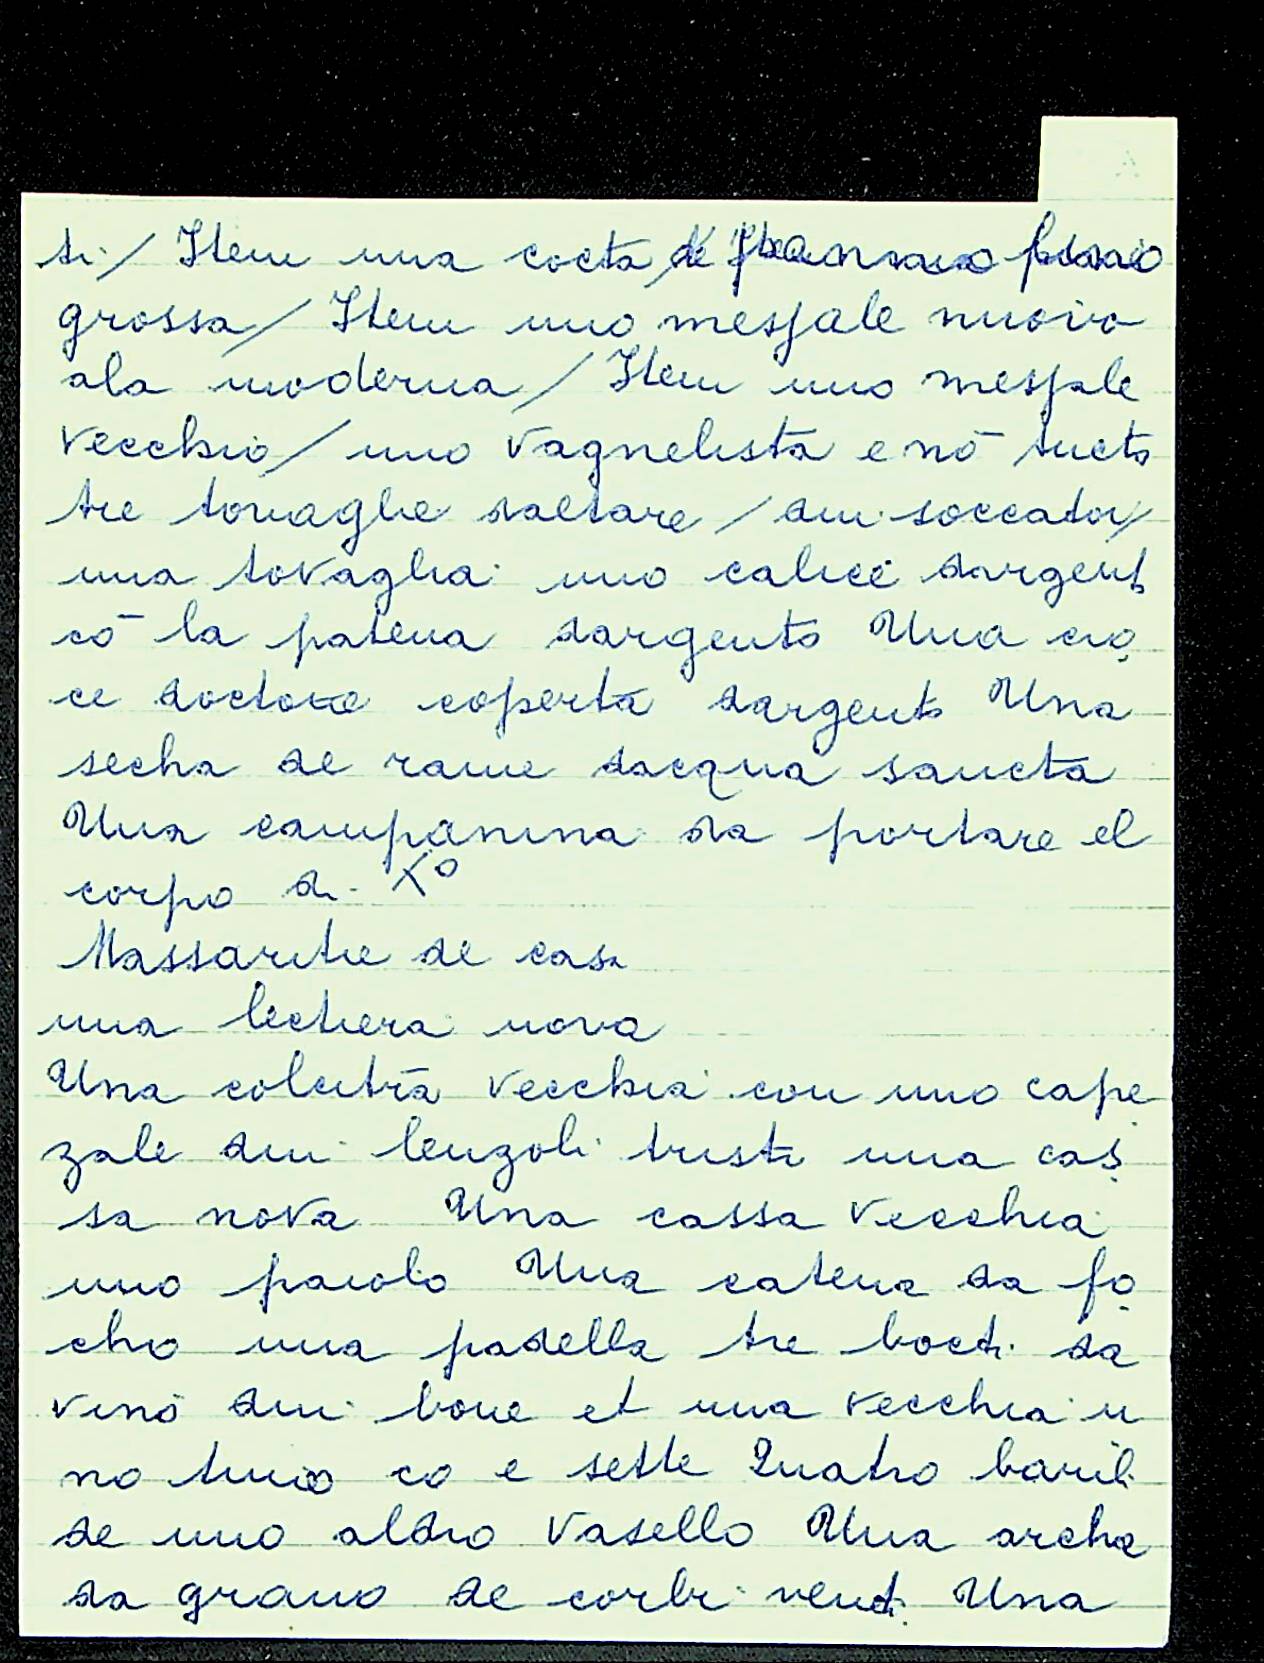 ti / Item una cocta de panno lino
grossa / Item uno messale nuovo
ala moderna / Item uno messale
vecchio / uno vagnelista e nō tucto
tre tovaglie daltare / dui
una tovaglia uno calice dargento
cō la patena dargento Una cro
ce doctone coperta dargento Una
secha de rame dacqua sancta
Una campanina da portare el
corpo di Xº
Massaritie de casa
una lectiera nova
Una colcitra vecchia con uno cape
zale dui lenzoli tristi una cas
sa nova Una cassa vecchia
uno paiolo Una catena da fo
cho una padella tre bocti da
vino dui bone et una vecchia u
no tino co e sette Quatro barili
de uno altro vasello Una archa
da grano de corbi venti Una